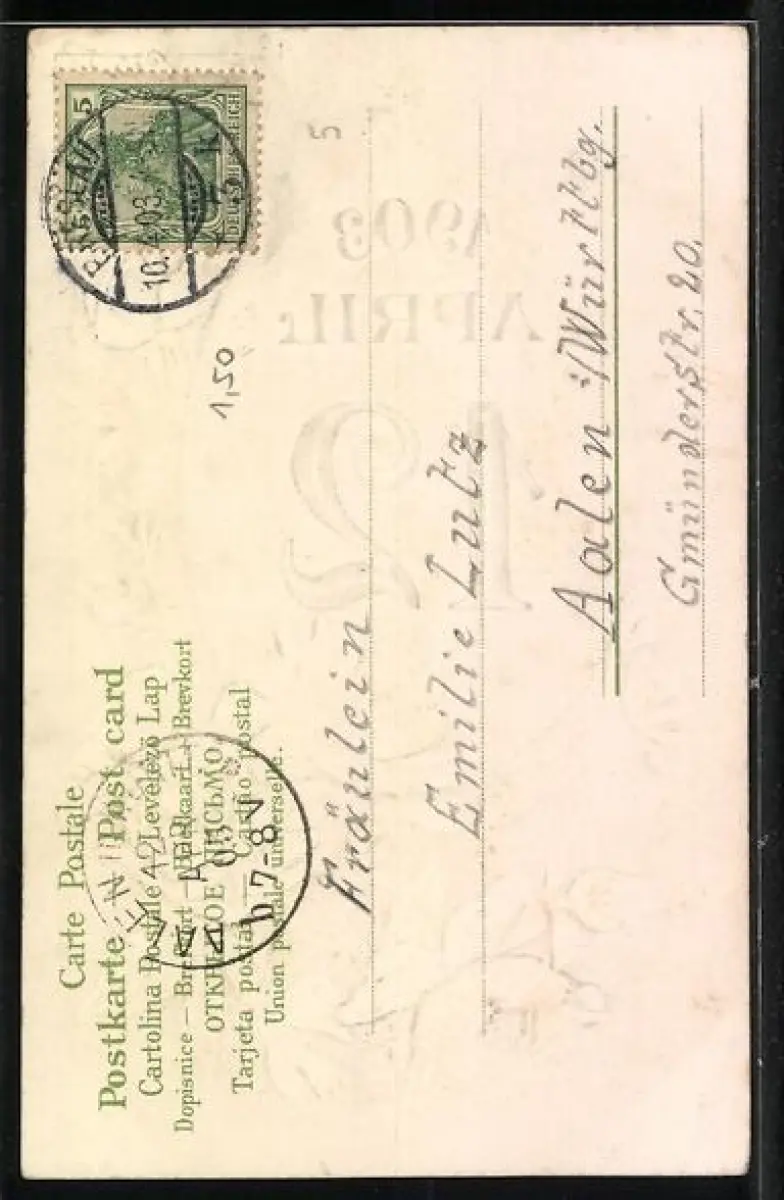 Carte Postale
Postkarte — Post card
Cartolina Postale — Levelező Lap
Dopisnice — Brefkort — Briefkaart — Brevkort
ОТКРЫТОЕ ПИСЬМО
Tarjeta postal — Cartão postal
Union postale universelle.
5
DEUTSCHES REICH
BRESLAU
10.4.03.
k
1,50
5
1903
APRIL
12
12
APR
03
b 7-8 V
Fräulein
Emilie Lutz
Aalen :/Würtlbg.
Gmünderstr. 20.